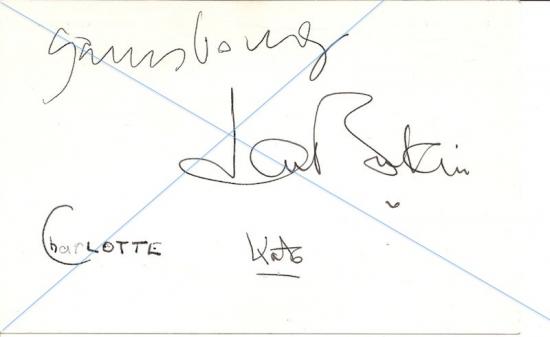 gainsbourg
Jane Birkin
CharLOTTE Kate